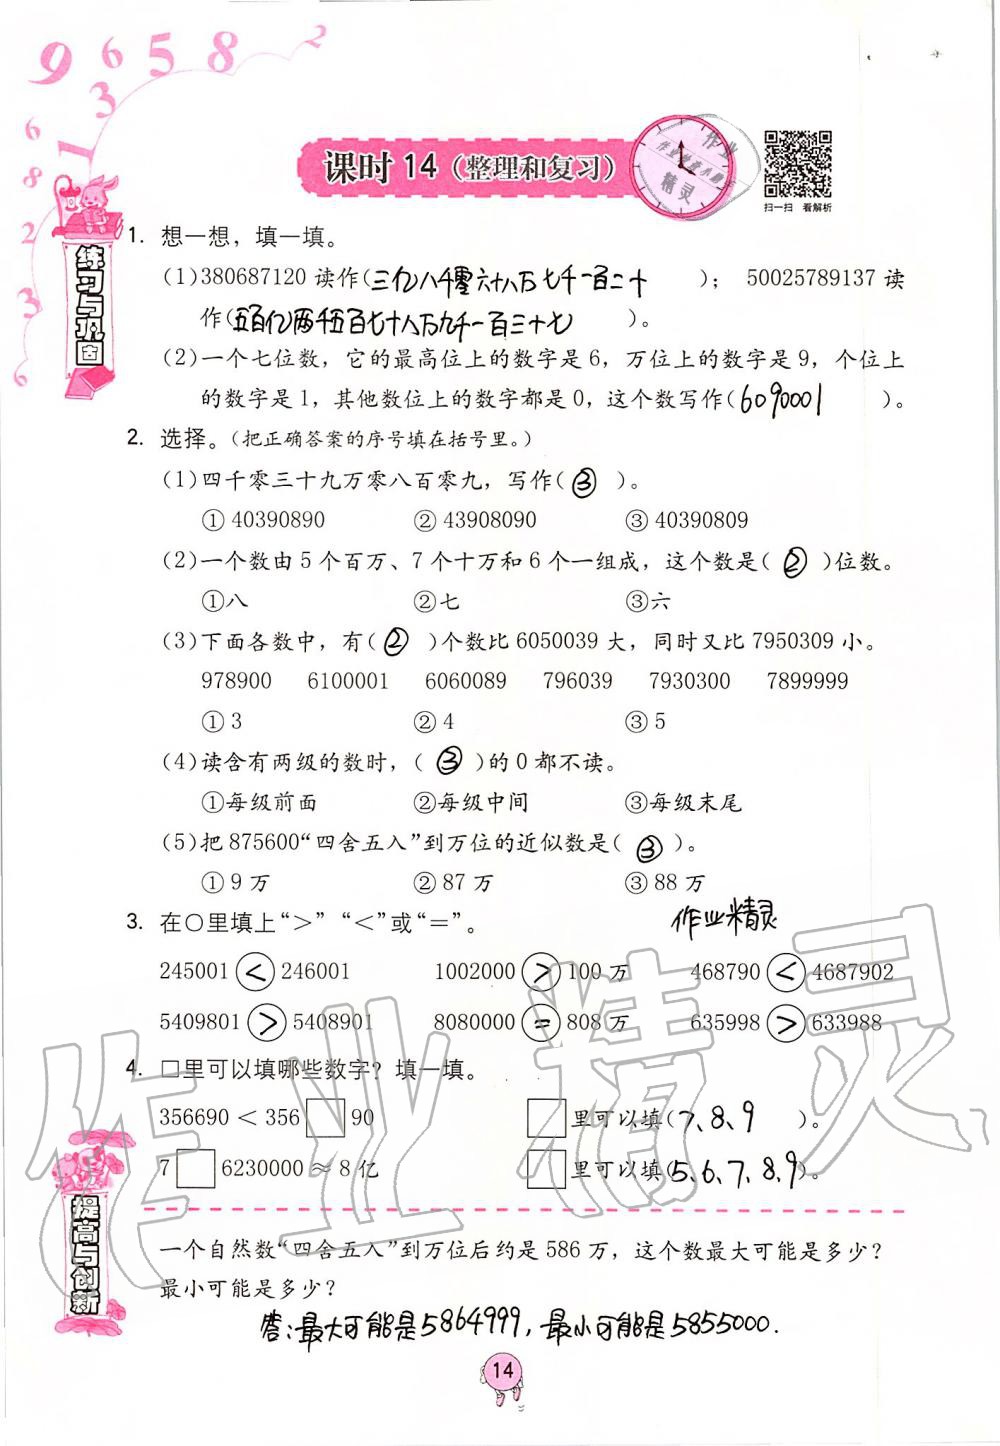 9 6 5 8 2
3
6 1
8
2
3
6
课时 14（整理和复习）
作业
精灵
扫一扫 看解析
练习与巩固
1. 想一想，填一填。
(1)380687120 读作(三亿八千零六十八万七千一百二十 )； 50025789137 读
作(五百亿两千五百七十八万九千一百三十七 )。
(2)一个七位数，它的最高位上的数字是 6，万位上的数字是 9，个位上
的数字是 1，其他数位上的数字都是 0，这个数写作(6090001 )。
2. 选择。（把正确答案的序号填在括号里。）
(1)四千零三十九万零八百零九，写作( ③ )。
① 40390890 ② 43908090 ③ 40390809
(2)一个数由 5 个百万、7 个十万和 6 个一组成，这个数是( ② )位数。
①八 ②七 ③六
(3)下面各数中，有( ② )个数比 6050039 大，同时又比 7950309 小。
978900 6100001 6060089 796039 7930300 7899999
① 3 ② 4 ③ 5
(4)读含有两级的数时，( ③ )的 0 都不读。
①每级前面 ②每级中间 ③每级末尾
(5)把 875600“四舍五入”到万位的近似数是( ③ )。
① 9 万 ② 87 万 ③ 88 万
3. 在○里填上“＞”“＜”或“＝”。
作业精灵
245001 < 246001 1002000 > 100 万 468790 < 4687902
5409801 > 5408901 8080000 = 808 万 635998 > 633988
4. □里可以填哪些数字？填一填。
356690 < 356□90 □里可以填(7、8、9 )。
7□6230000 ≈ 8 亿 □里可以填(5、6、7、8、9)。
作业精灵
提高与创新
一个自然数“四舍五入”到万位后约是 586 万，这个数最大可能是多少？
最小可能是多少？
答：最大可能是5864999，最小可能是5855000.
14